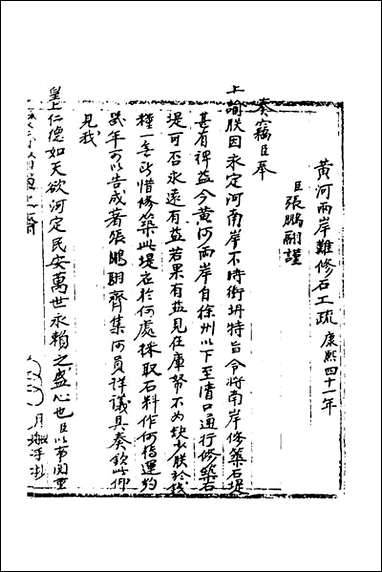 黃河兩岸難修石工疏 康熙四十一年
臣張鵬翮謹
奏竊臣奉
上諭朕因永定河南岸不時衝坍特旨令將南岸修築石堤
甚有裨益今黃河兩岸自徐州以下至清口通行修築石
堤可否永遠有益若果有益見在庫帑不為缺少朕於
種一無所惜修築此堤應於何處採取石料作何轉運約
幾年可以告成著張鵬翮齊集河員詳議具奏欽此仰
見我
皇上仁德如天欲河定民安萬世永賴之盛心也臣以事関重